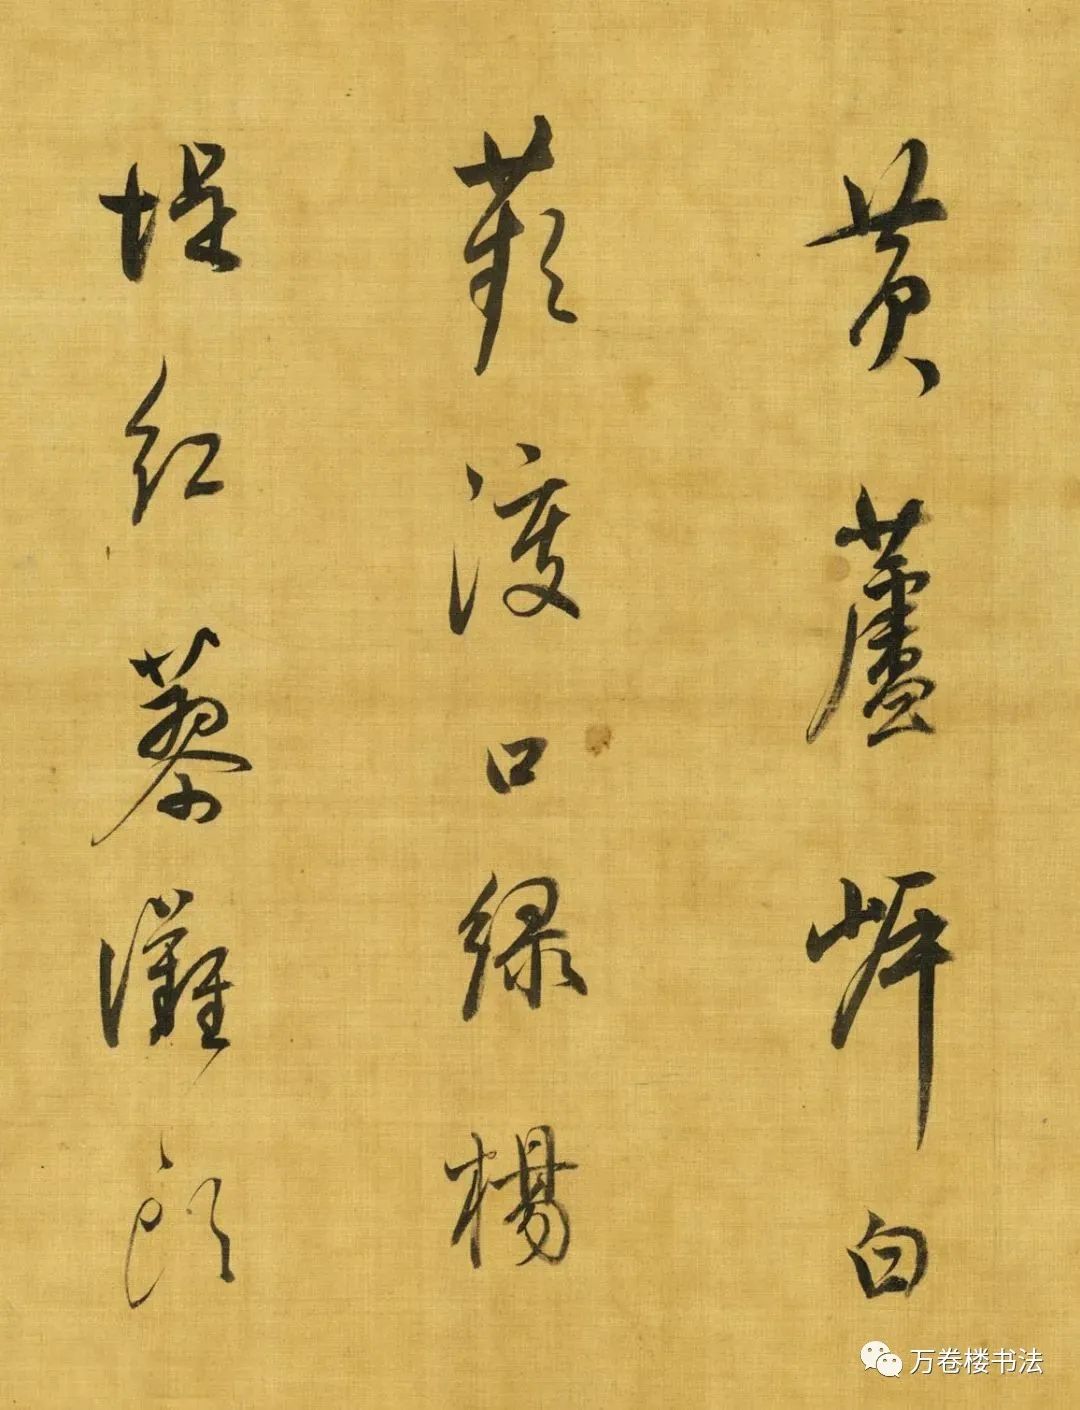 黄蘆岸白
蘋渡口緑楊
堤紅蓼灘頭
万卷楼书法